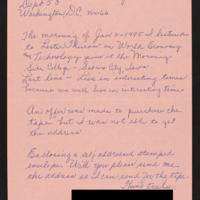 Dept 53
Washington, D.C.
The morning of Jan 2-1995 I listened
to Lester Thurow on World Economy
& Technology given at the Morning
Side College - Sioux City Iowa
Last line - Live in interesting times
because we will live in interesting times
An offer was made to purchase the
tape but I was not able to get
the address.
Enclosing a self addressed stamped
envelope. Will you please send me
the address so I can send for the tape.
Thank